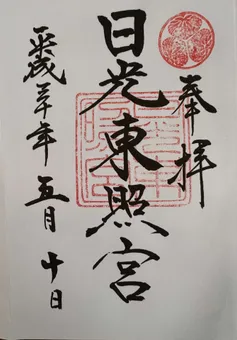 奉拝
日光東照宮
平成三十年五月十日